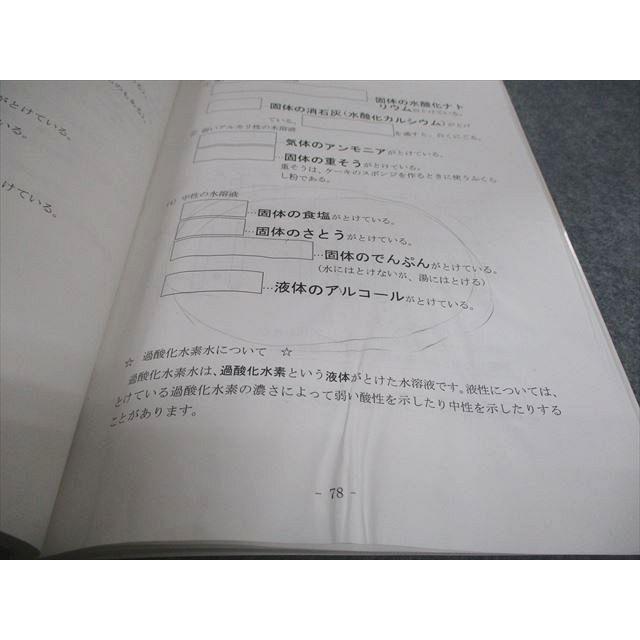 がとけている。
いる。
けている。
固体の水酸化ナト
リウムがとけている。
固体の消石灰(水酸化カルシウム)がとけ
ている。
を通すと、白くにごる。
弱いアルカリ性の水溶液
気体のアンモニアがとけている。
…固体の重そうがとけている。
重そうは、ケーキのスポンジを作るときに使うふくら
し粉である。
中性の水溶液
…固体の食塩がとけている。
…固体のさとうがとけている。
…固体のでんぷんがとけている。
(水にはとけないが、湯にはとける)
…液体のアルコールがとけている。
☆ 過酸化水素水について ☆
過酸化水素水は、過酸化水素という液体がとけた水溶液です。液性については、
とけている過酸化水素の濃さによって弱い酸性を示したり中性を示したりする
ことがあります。
- 78 -